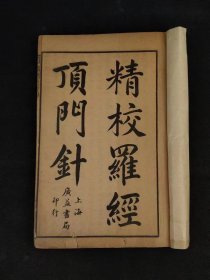 精校羅經
頂門針
上海
廣益書局
印行